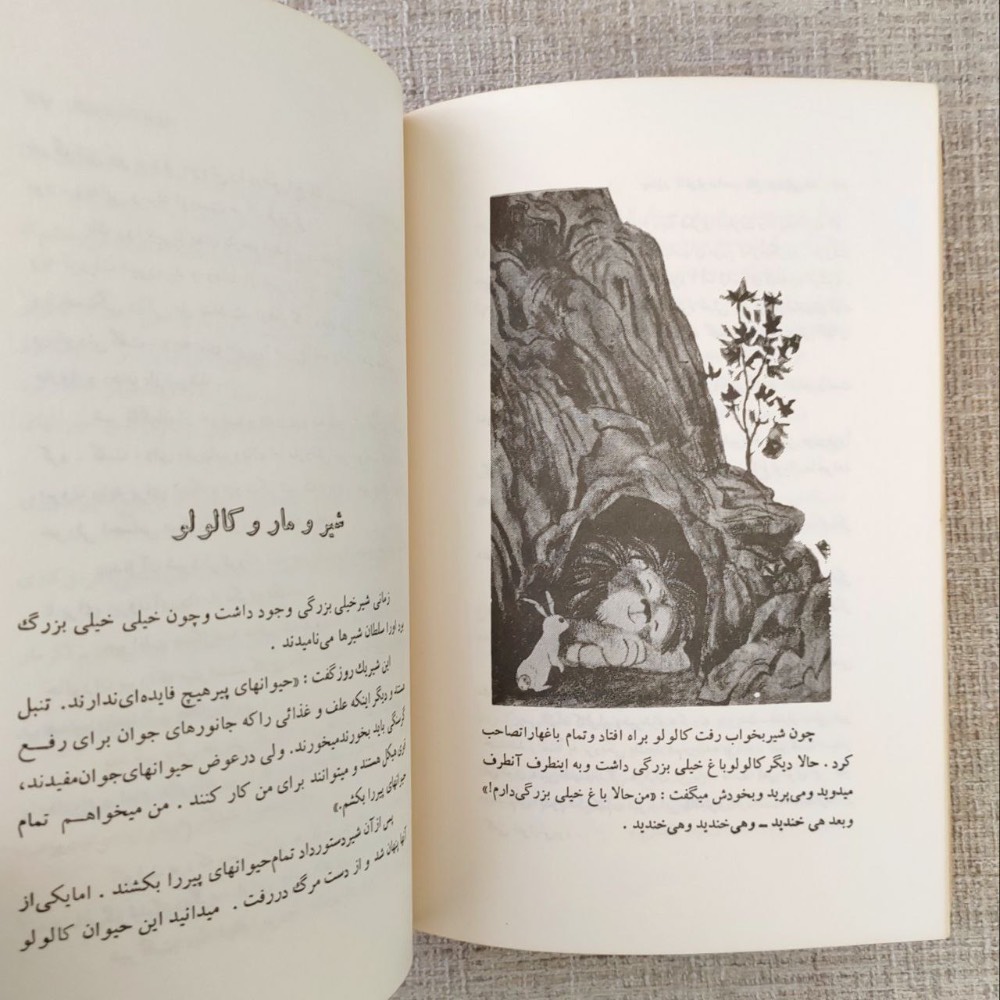 چون شیربخواب رفت کالولو براه افتاد وتمام باغهاراتصاحب
کرد . حالا دیگرکالولوباغ خیلی بزرگی داشت وبه اینطرف آنطرف
میدوید ومی‌پرید وبخودش میگفت : «من‌حالا باغ خیلی بزرگی‌دارم!»
وبعد هی خندید ــ وهی‌خندید وهی‌خندید .
شیر و مار و کالولو
زمانی شیرخیلی بزرگی وجود داشت وچون خیلی خیلی بزرگ
بود اورا سلطان شیرها می‌نامیدند .
این شیریك روزگفت : «حیوانهای پیرهیچ فایده‌ای‌ندارند. تنبل
هستند و دیگر اینکه علف و غذائی راکه جانورهای جوان برای رفع
گرسنگی باید بخورندمیخورند. ولی درعوض حیوانهای‌جوان‌مفیدند،
قوی هیکل هستند و میتوانند برای من کار کنند . من میخواهم تمام
حیوانهای پیررا بکشم.»
پس ازآن شیردستورداد تمام‌حیوانهای پیررا بکشند . امایکی‌از
آنها پنهان شد و از دست مرگ دررفت . میدانید این حیوان کالولو